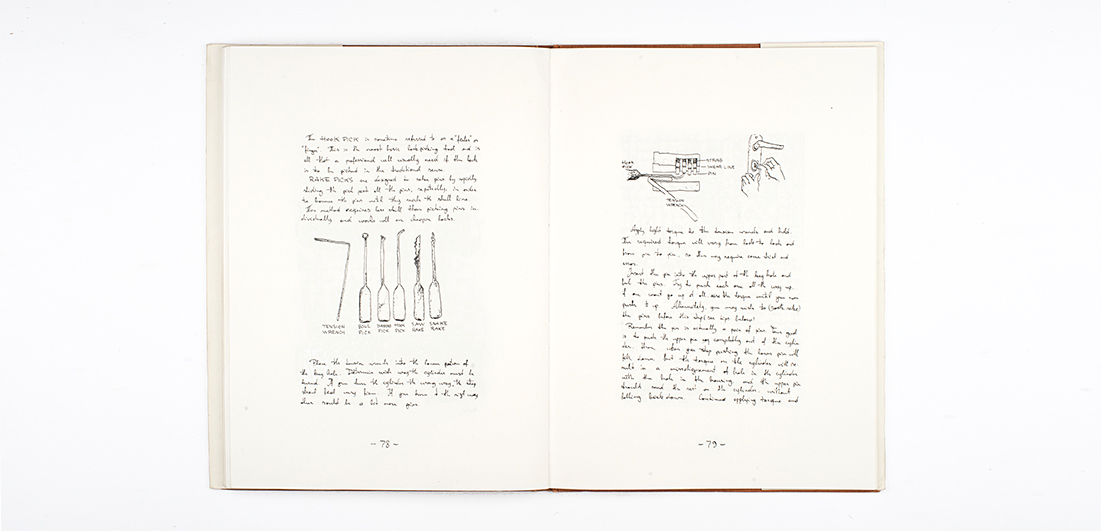 The HOOK PICK is sometimes referred to as a "feeler" or
"finger". This is the most basic lockpicking tool and is
all that a professional will usually need if the lock
is to be picked in the traditional sense.
RAKE PICKS are designed to rake pins by rapidly
sliding the pick past all the pins, repeatedly, in order
to bounce the pins until they reach the shell line.
This method requires less skill than picking pins in-
dividually and works well on cheaper locks.
TENSION WRENCH
BALL PICK
HOOK PICK
SAW RAKE
SNAKE RAKE
Place the tension wrench into the lower portion of
the key hole. Determine wich way the cylinder must be
turned. If you turn the cylinder the wrong way, the stop
should feel very firm. If you turn it the right way
there should be a bit more give.
- 78 -
HOOK PICK
SPRING
SHEAR LINE
PIN
TENSION WRENCH
Apply light torque to the tension wrench and hold.
The required torque will vary from lock to lock and
from pin to pin, so this may require some trial and
error.
Insert the pin into the upper part of the key hole and
feel the pins. Try to push each one all the way up.
If one wont go up at all, the torque until you can
push it up. Alternately, you may wish to
the pins before this step (see tips below).
Remember the pin is actually a pair of pins. Your goal
is to push the upper pin completely out of the cylin-
der. Then when you stop pushing the lower pin will
fall down, but the torque on the cylinder will re-
sult in a misalignement of hole in the cylinder
with the hole in the housing and the upper pin
should the rest on the cylinder without
falling back down. Continued applying torque and
- 79 -